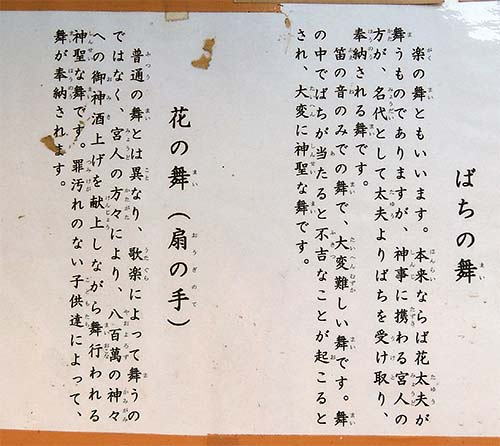 ばちの舞
楽の舞ともいいます。本来ならば花太夫が
舞うものでありますが、神事に携わる宮人の
方が、名代として太夫よりばちを受け取り、
奉納される舞です。
笛の音のみでの舞で、大変難しい舞です。舞
の中でばちが当たると不吉なことが起こると
され、大変に神聖な舞です。
花の舞（扇の手）
普通の舞とは異なり、歌楽によって舞うの
ではなく、宮人の方々により、八百萬の神々
への御神酒上げを献上しながら舞行われる
神聖な舞です。罪汚れのない子供達によって、
舞が奉納されます。